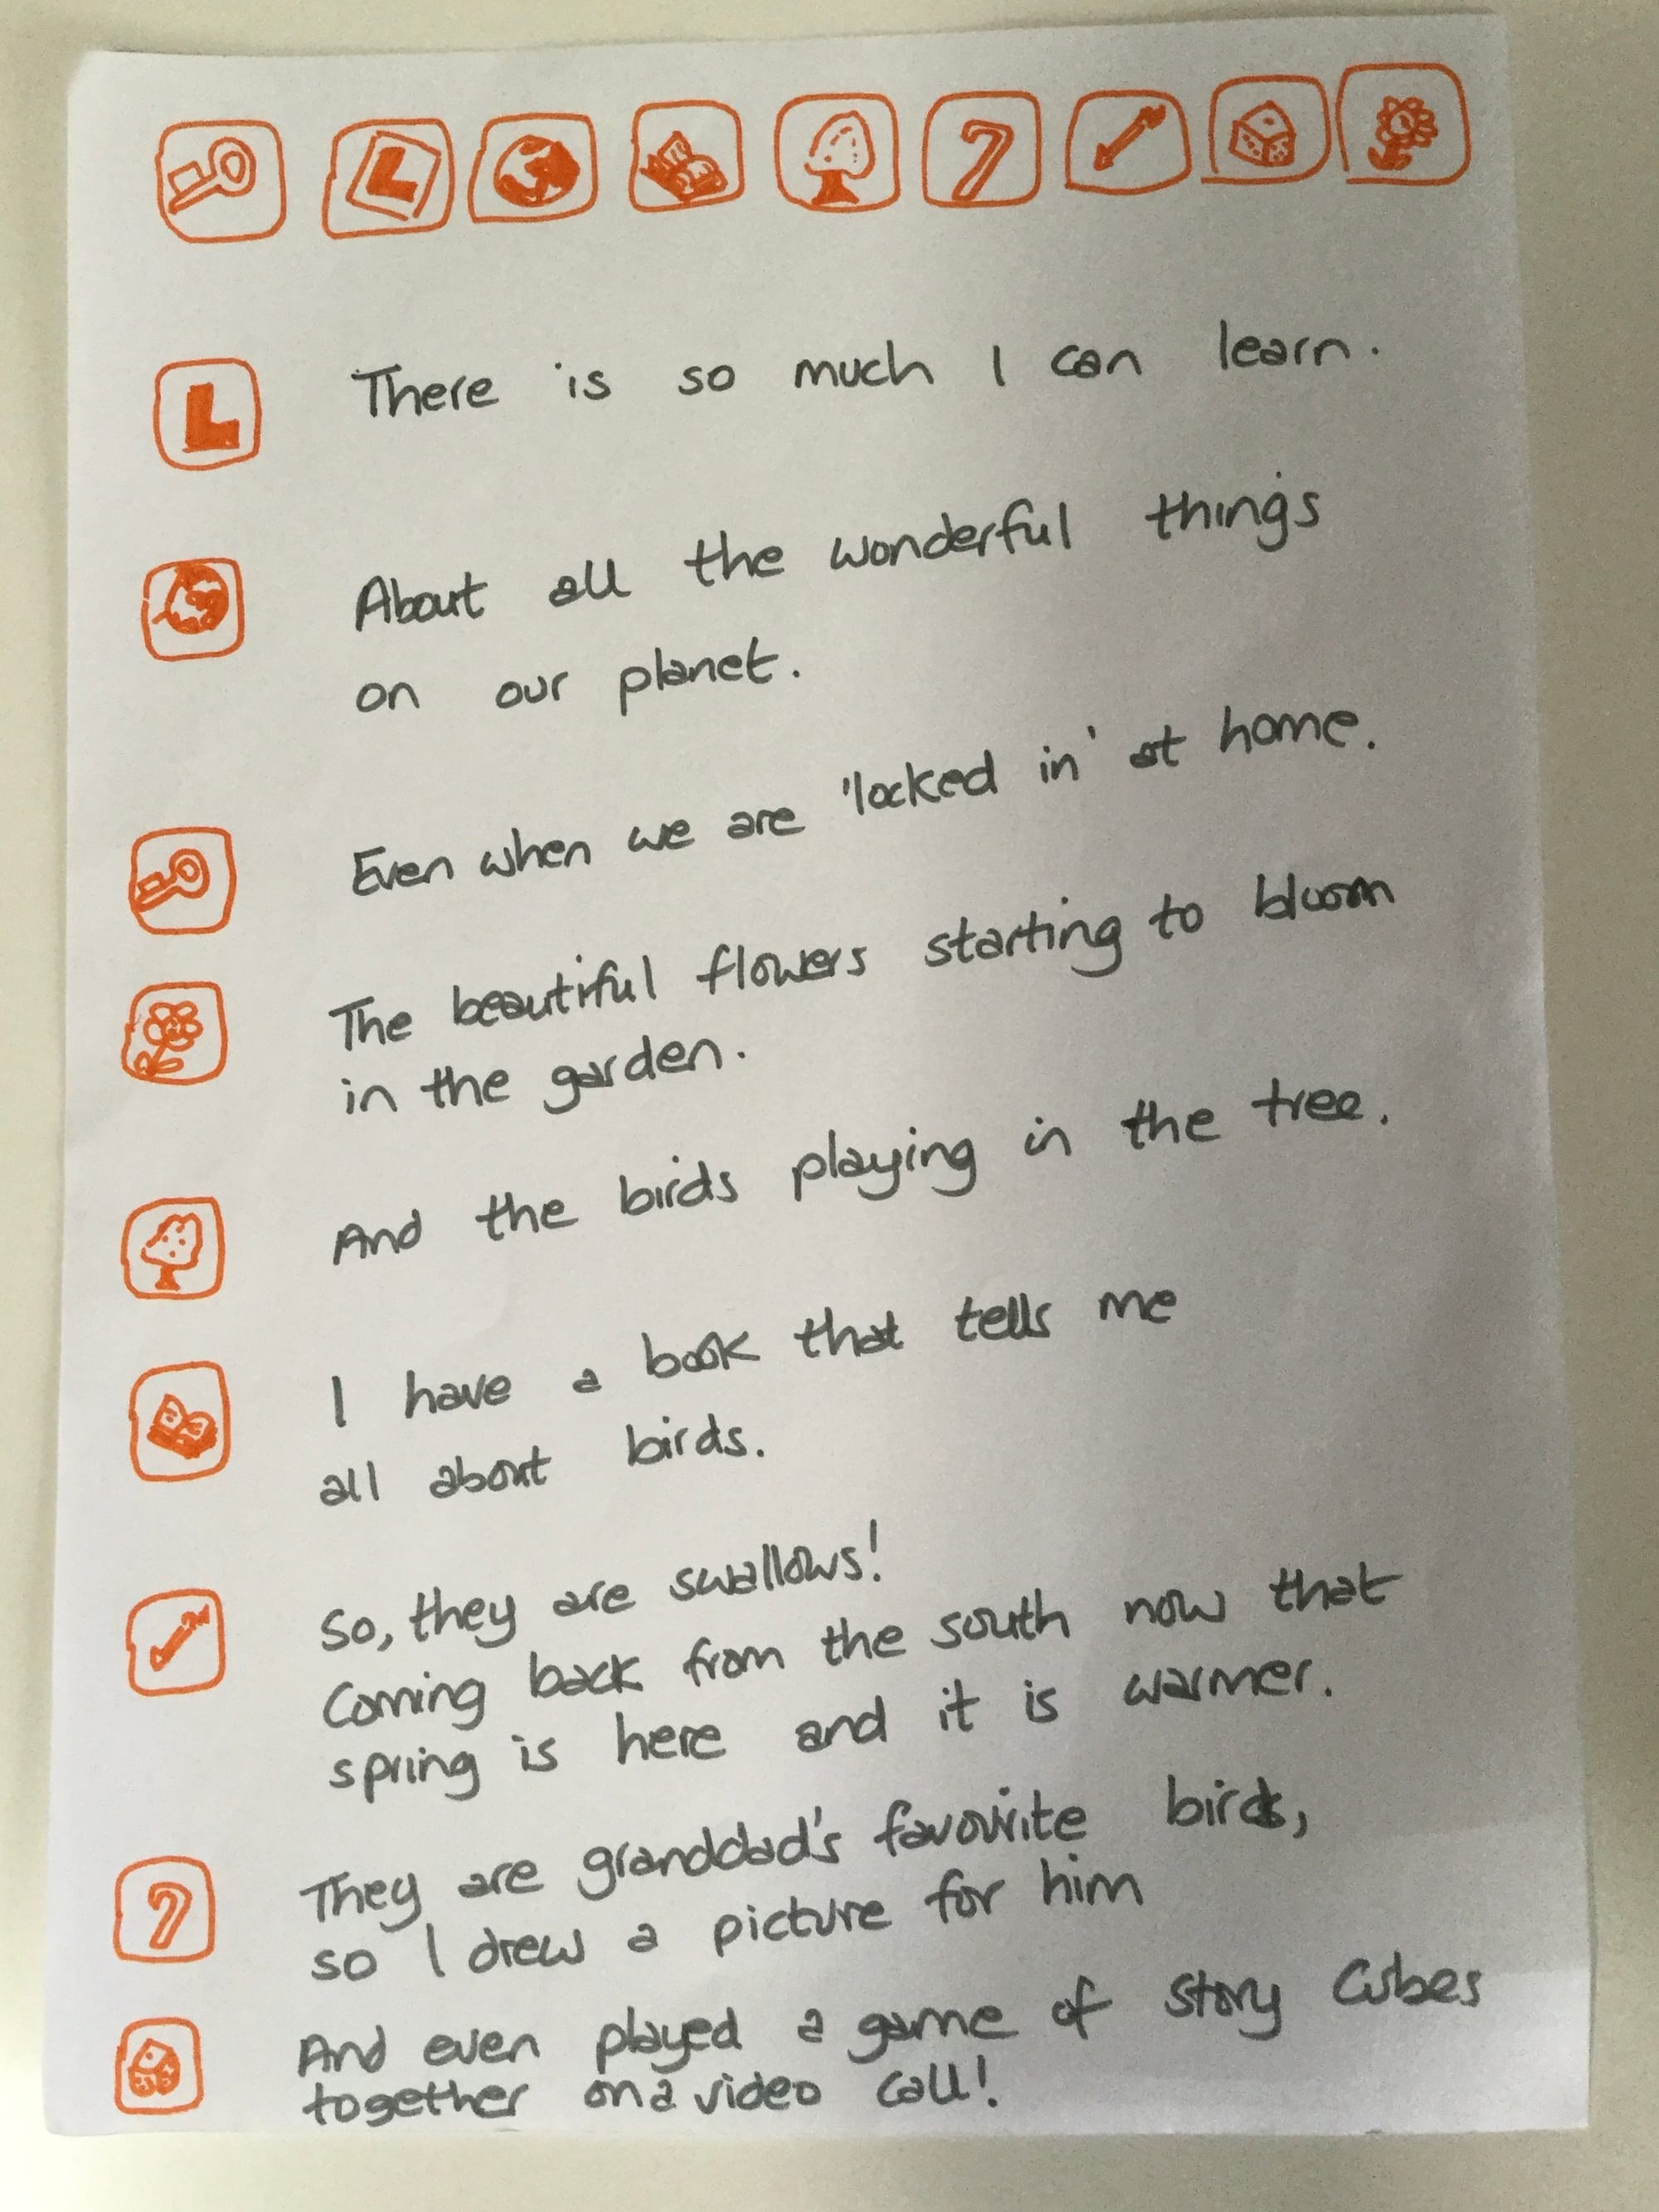 L
There is so much I can learn.
L
About all the wonderful things
on our planet.
Even when we are 'locked in' at home.
The beautiful flowers starting to bloom
in the garden.
And the birds playing in the tree.
I have a book that tells me
all about birds.
So, they are swallows!
Coming back from the south now that
spring is here and it is warmer.
They are granddad's favourite birds,
so I drew a picture for him
And even played a game of Story Cubes
together on a video call!